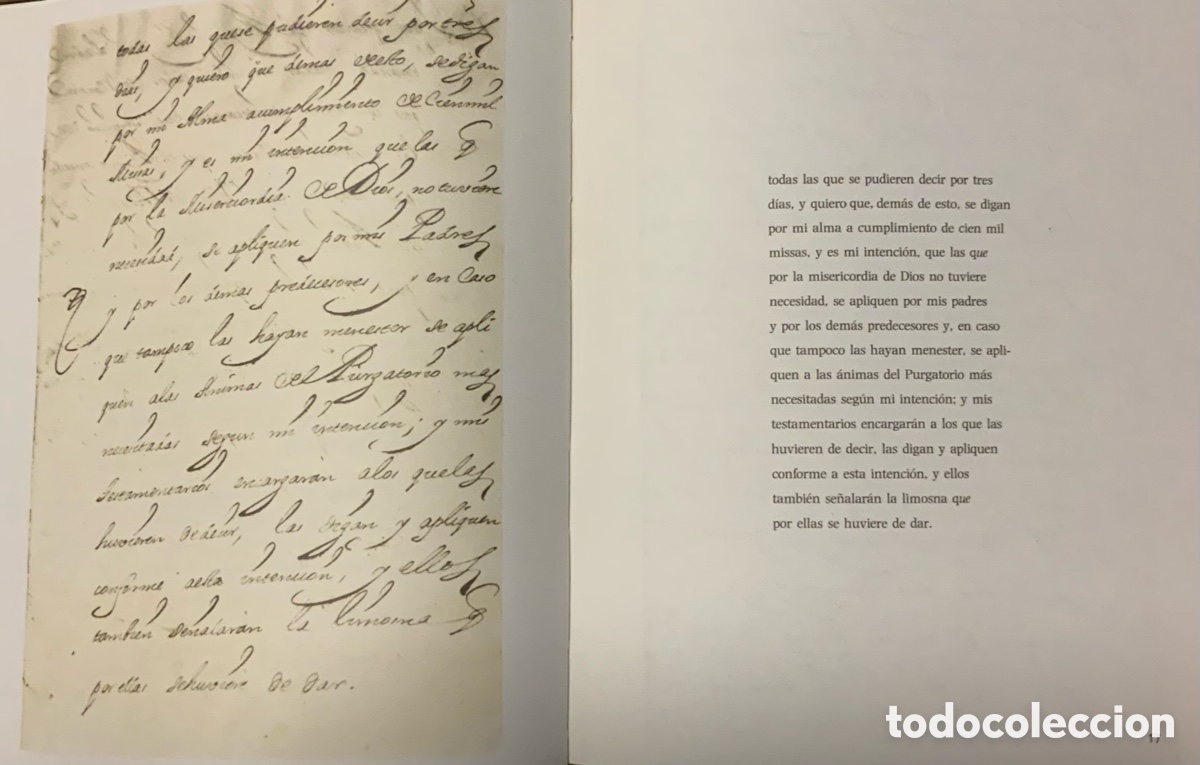 todas las quese pudieren decir por tres
dias, y quiero que demas desto, se digan
por mi Alma acumplimiento de Cienmil
Misas, y es mi intencion que las q
por la Misericordia de Dios, no tuviere
necesidad, se apliquen por mis Padres
y por los demas predecesores, y en Caso
que tampoco las hayan menester se apli
quen alas Animas del Purgatorio mas
necesitadas segun mi intencion; y mis
testamentarios encargaran alos quelas
huvieren de decir, las digan y apliquen
conforme aesta intencion, y ellos
tambien señalaran la limosna q
por ellas sehuviere de dar.
todas las que se pudieren decir por tres
días, y quiero que, demás de esto, se digan
por mi alma a cumplimiento de cien mil
missas, y es mi intención, que las que
por la misericordia de Dios no tuviere
necesidad, se apliquen por mis padres
y por los demás predecesores y, en caso
que tampoco las hayan menester, se apli-
quen a las ánimas del Purgatorio más
necesitadas según mi intención; y mis
testamentarios encargarán a los que las
huvieren de decir, las digan y apliquen
conforme a esta intención, y ellos
también señalarán la limosna que
por ellas se huviere de dar.
17
todocoleccion